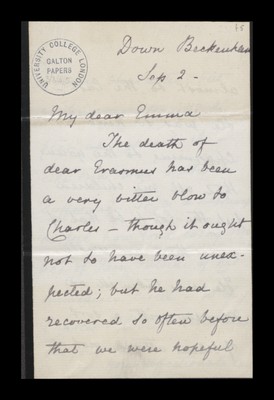 15
UNIVERSITY COLLEGE LONDON
GALTON
PAPERS
Down Beckenham
Sep 2 -
My dear Emma
The death of
dear Erasmus has been
a very bitter blow to
Charles – though it ought
not to have been unex-
pected; but he had
recovered so often before
that we were hopeful